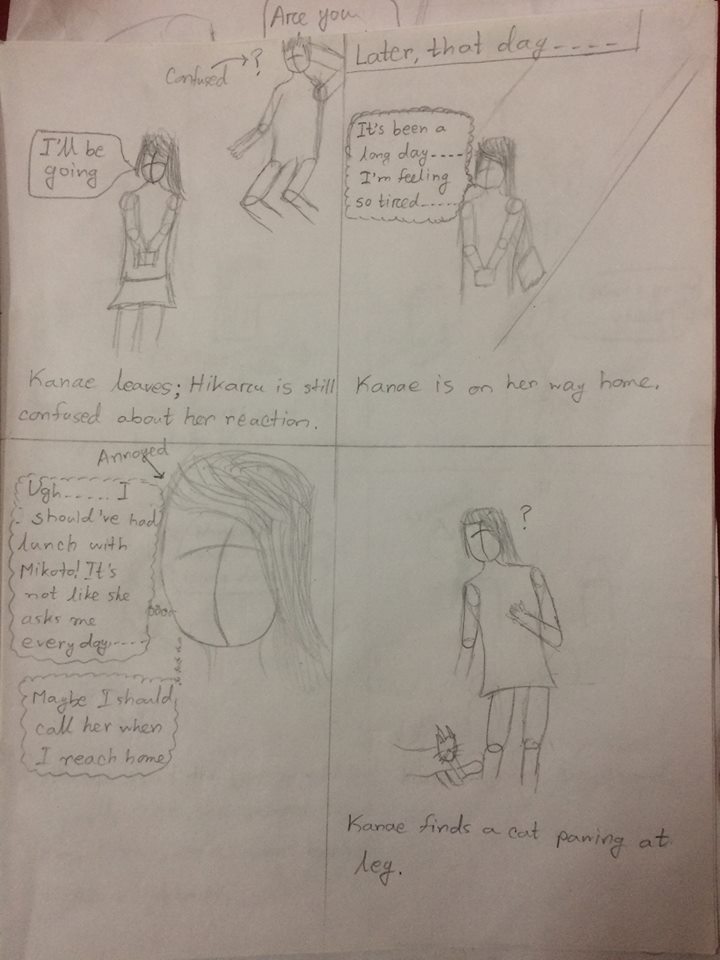 Are you
Confused
?
I'll be
going
Kanae leaves; Hikaru is still
confused about her reaction.
Later, that day----
It's been a
long day----
I'm feeling
so tired-----
Kanae is on her way home.
Annoyed
Ugh----- I
should've had
lunch with
Mikoto! It's
not like she
asks me
every day----
Maybe I should
call her when
I reach home
?
Kanae finds a cat pawing at
leg.